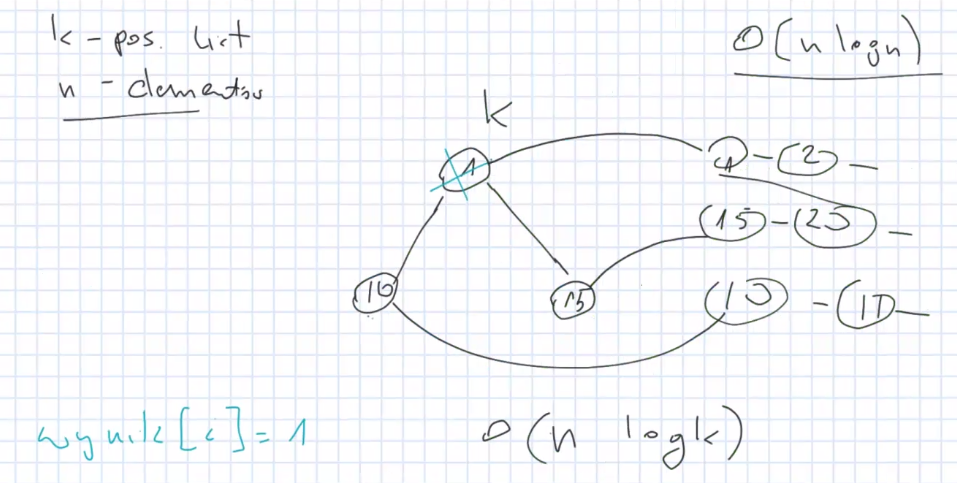 k - pos. list
n - elementów
O(n log n)
k
1
1 - 2 -
15 - 20 -
10 - 11 -
10
15
wynik[i] = 1
O(n log k)